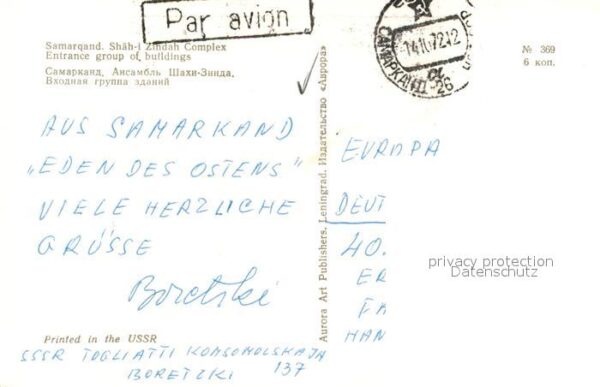 Par avion
Samarqand. Shāh-i Zindah Complex
Entrance group of buildings
Самарканд. Ансамбль Шахи-Зинда.
Входная группа зданий
№ 369
6 коп.
САМАРКАНД
AUS SAMARKAND
"EDEN DES OSTENS"
VIELE HERZLICHE
GRÜSSE
Boretzki
Printed in the USSR
SSSR TOGLIATTI KOMSOMOLSKAJA
BORETZKI 137
Aurora Art Publishers. Leningrad. Издательство «Аврора»
EVROPA
DEUT
40.
ER
FR
HAN
privacy protection
Datenschutz